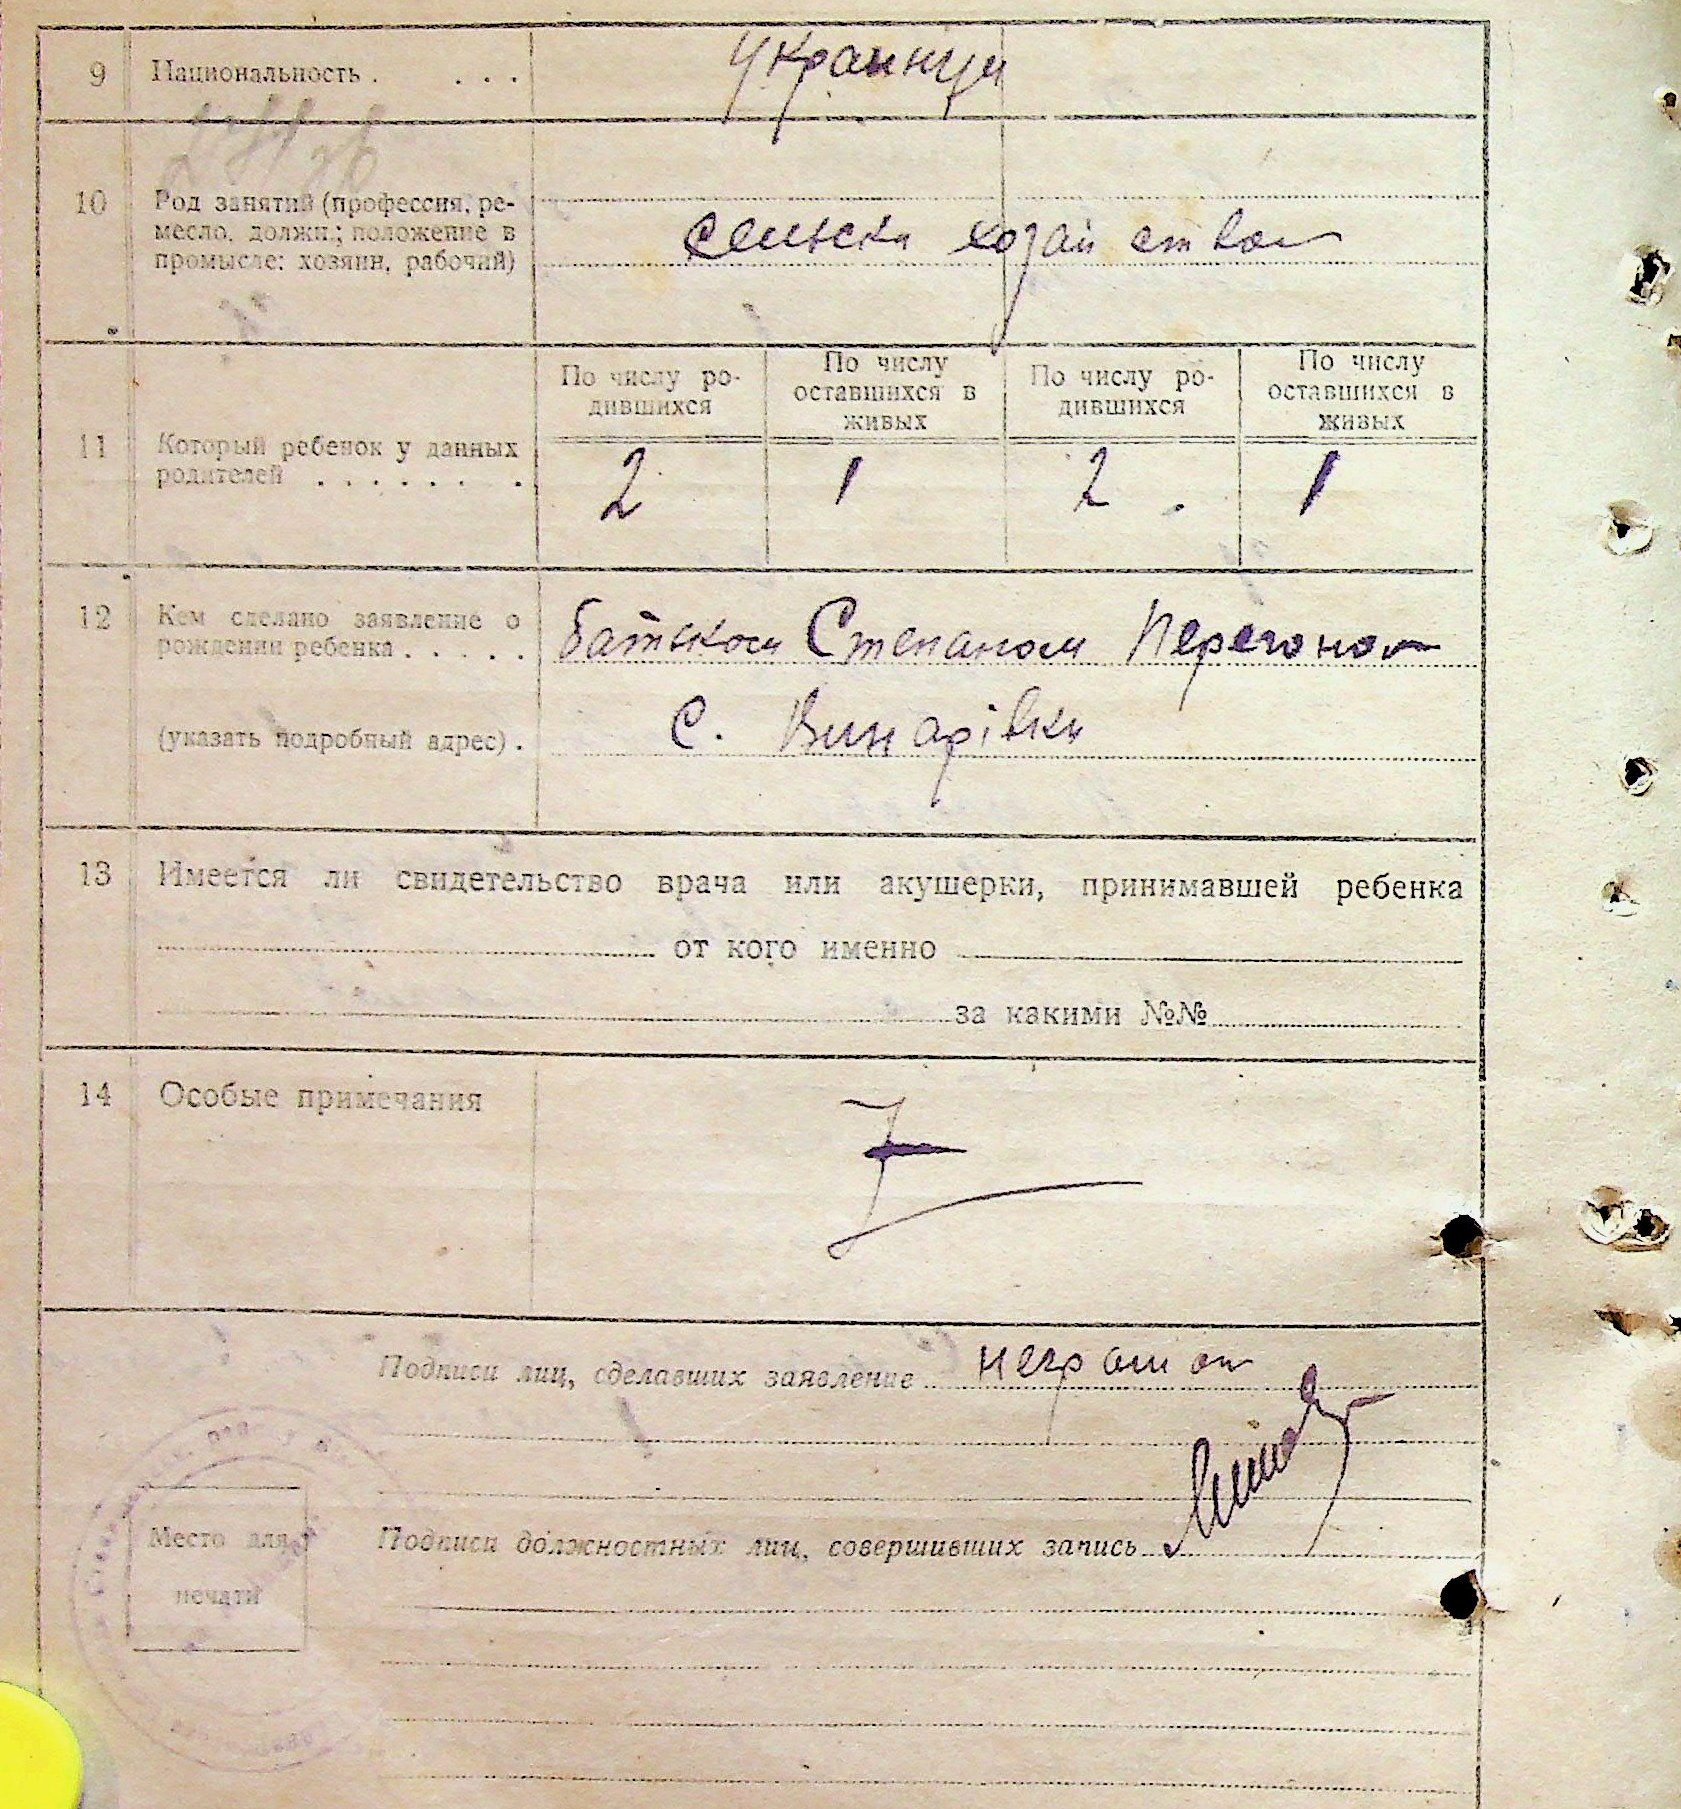 9 Национальность . . . . украинци
10 Род занятий (профессия, ре-
месло, должн.; положение в
промысле: хозяин, рабочий)
сельски хозяйством
11 Который ребенок у данных
родителей . . . . . . .
По числу ро-
дившихся
По числу
оставшихся в
живых
По числу ро-
дившихся
По числу
оставшихся в
живых
2 1 2 1
12 Кем сделано заявление о
рождении ребенка . . . . .
батьком Степаном Перегоном
(указать подробный адрес) .
с. Винарівки
13 Имеется ли свидетельство врача или акушерки, принимавшей ребенка
от кого именно
за какими №№
14 Особые примечания
Подписи лиц, сделавших заявление неграмот
Подписи должностных лиц, совершивших запись
Место для
печати